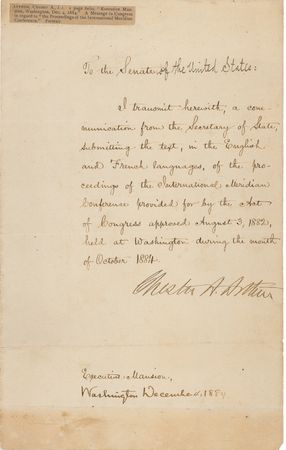 ARTHUR, CHESTER A. 1 page folio, "Executive Man-
sion, Washington, Dec. 4, 1884." A Message to Congress
in regard to "the Proceedings of the International Meridian
Conference."
To the Senate of the United States:
I transmit herewith, a com-
munication from the Secretary of State,
submitting the text, in the English
and French languages, of the pro-
ceedings of the International Meridian
Conference provided for by the Act
of Congress approved August 3, 1882,
held at Washington during the month
of October 1884.
Chester A. Arthur
Executive Mansion,
Washington December 4, 1884